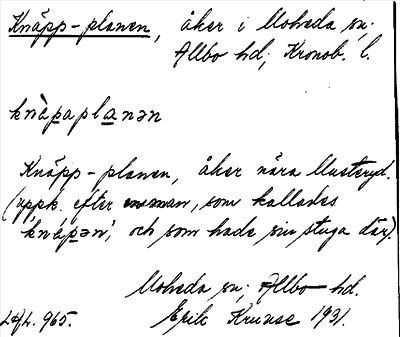 Knäpp-planen, åker i Moheda sn;
Allbo hd; Kronob. l.
knäpaplanən
Knäpp-planen, åker nära Musteryd.
(uppk. efter en man, som kallades
'knäpən', och som hade sin stuga där).
Moheda sn; Allbo hd.
LAL. 965. Erik Krusse 1931.